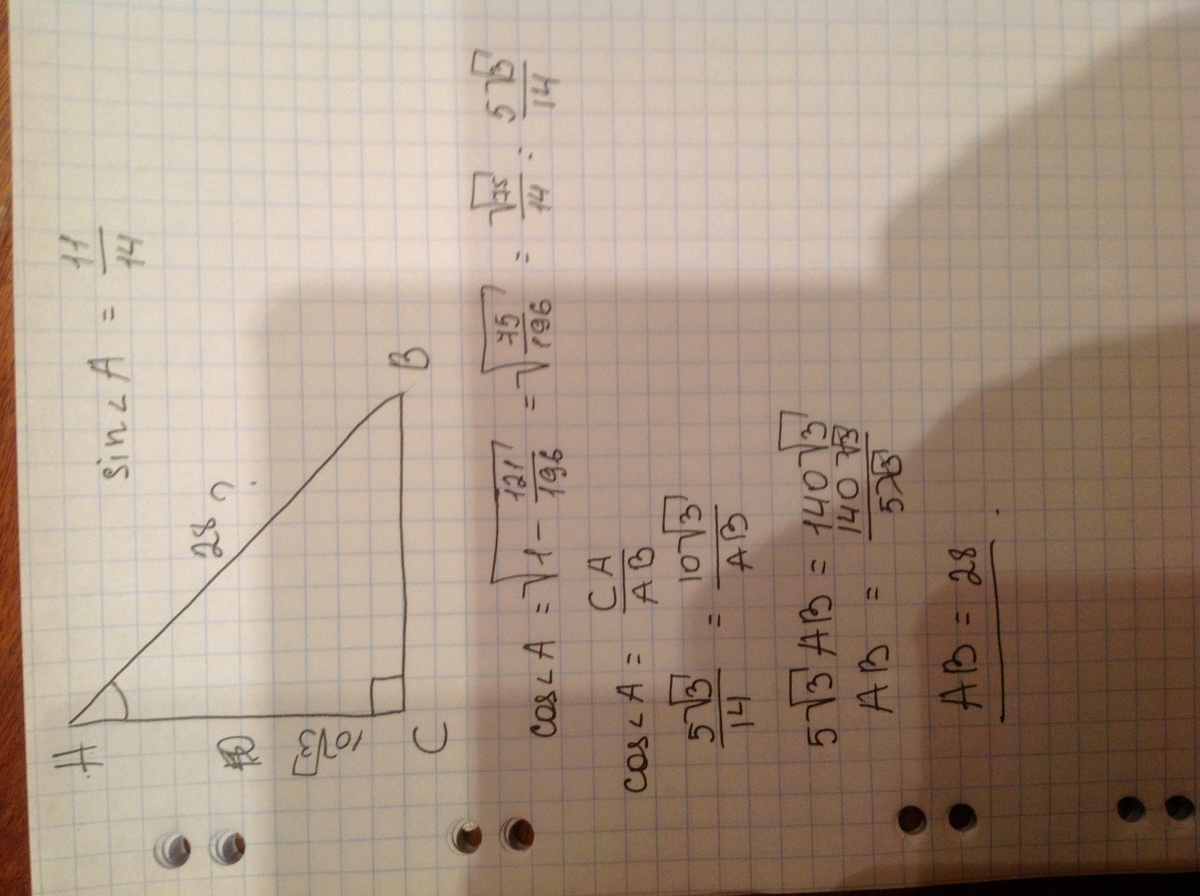 sin∠A = 11/14
A
28 ?
10√3
C
B
cos∠A = √(1 - 121/196) = √(75/196) = √75/14 · 5√3/14
cos∠A = CA/AB
5√3/14 = 10√3/AB
5√3 AB = 140√3
AB = 140√3/5√3
AB = 28.